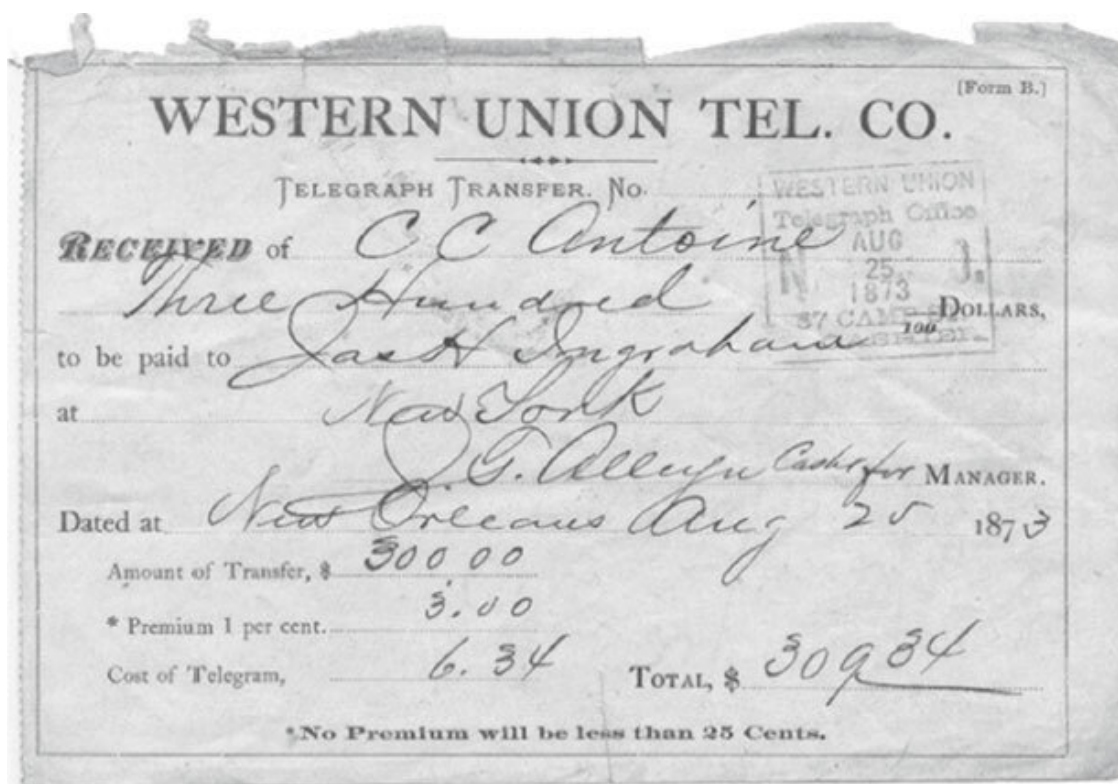 [Form B.]
WESTERN UNION TEL. CO.
TELEGRAPH TRANSFER. No.
WESTERN UNION
Telegraph Office
AUG
25
1873
N. J.
RECEIVED of C C Antoine
Three Hundred 100 DOLLARS,
to be paid to Jas H Ingraham
at New York
J. G. Alleyn for MANAGER.
Dated at New Orleans Aug 25 1873
Amount of Transfer, $ 300 00
* Premium 1 per cent. 3.00
Cost of Telegram, 6.34 TOTAL, $ 309 34
*No Premium will be less than 25 Cents.